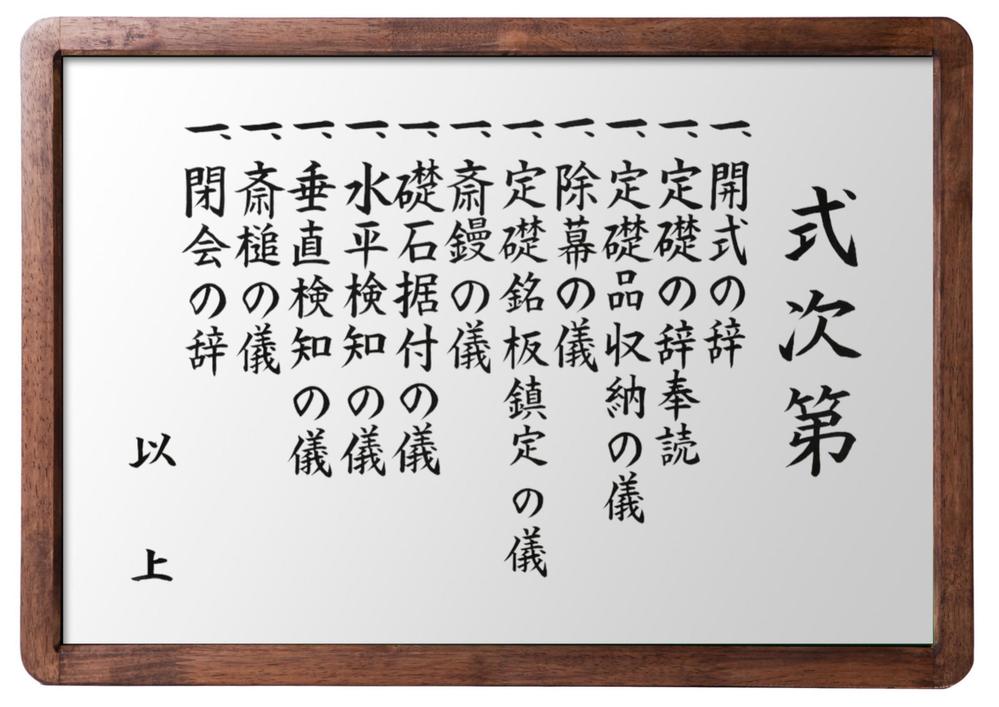 式次第
一、開式の辞
一、定礎の辞奉読
一、定礎品収納の儀
一、除幕の儀
一、定礎銘板鎮定の儀
一、斎鏝の儀
一、礎石据付の儀
一、水平検知の儀
一、垂直検知の儀
一、斎槌の儀
一、閉会の辞
以上